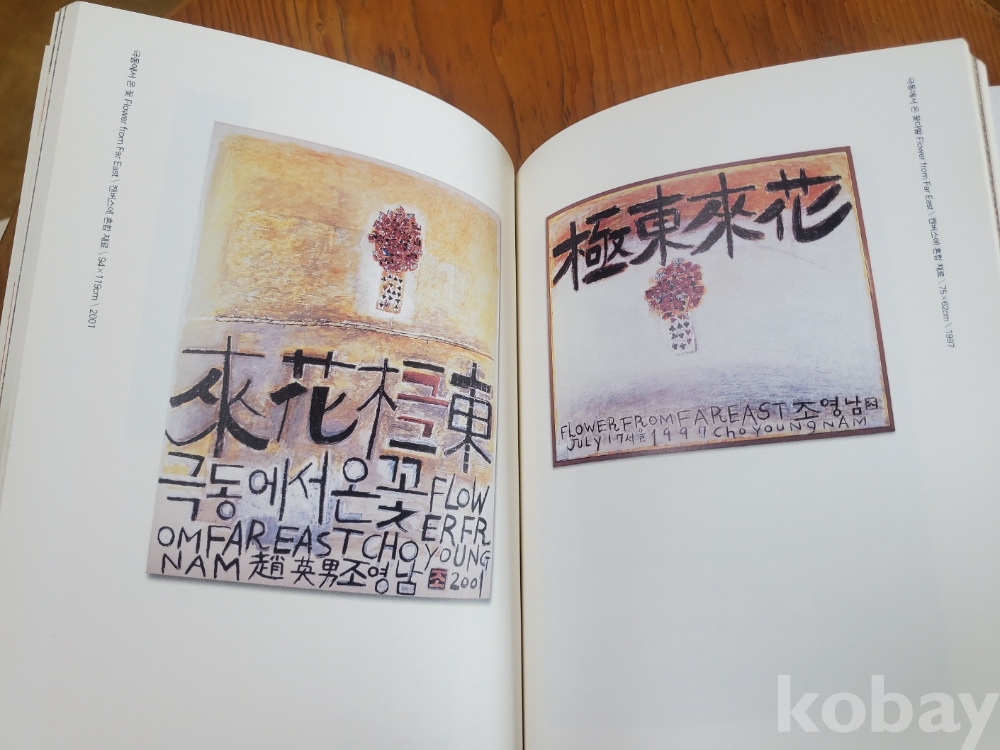 극동에서 온 꽃 Flower from Far East \ 캔버스에 혼합 재료 \ 94×119cm \ 2001
來花極東
극동에서온꽃 FLOW
ERFR
OMFAREASTCHOYOUNG
NAM 趙英男조영남 조 2001
극동에서 온 꽃다발 Flower from Far East \ 캔버스에 혼합 재료 \ 75×62cm \ 1997
極東來花
FLOWERFROMFAREAST 조영남 조
JULY 17서울1997 CHOYOUNGNAM
kobay